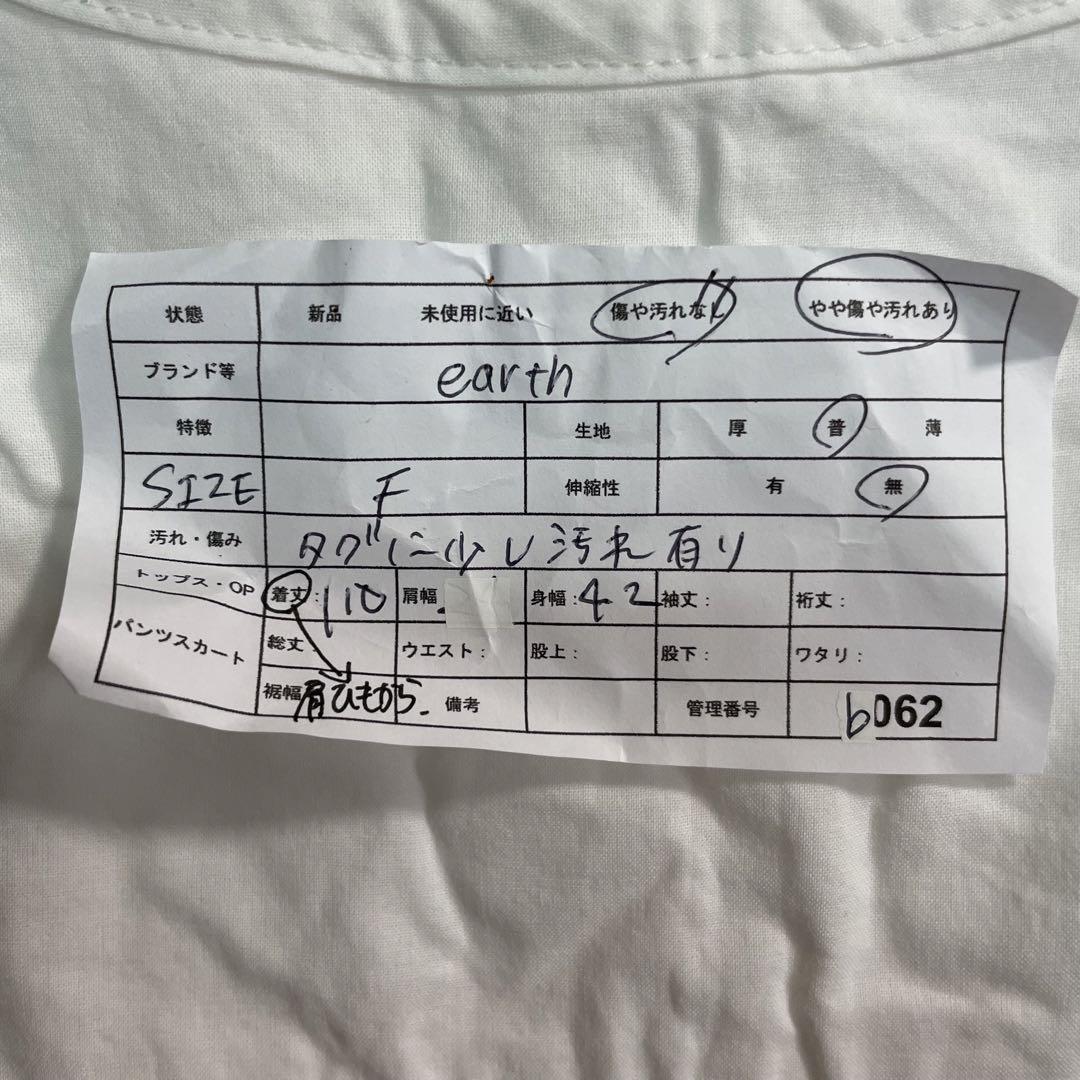 状態 新品 未使用に近い 傷や汚れなし やや傷や汚れあり
ブランド等 earth
特徴 生地 厚 普 薄
SIZE F 伸縮性 有 無
汚れ・傷み タグに少し汚れ有り
トップス・OP 着丈: 110 肩幅 身幅: 42 袖丈: 裄丈:
パンツスカート 総丈 ウエスト: 股上: 股下: ワタリ:
裾幅 肩ひもから 備考 管理番号 b062